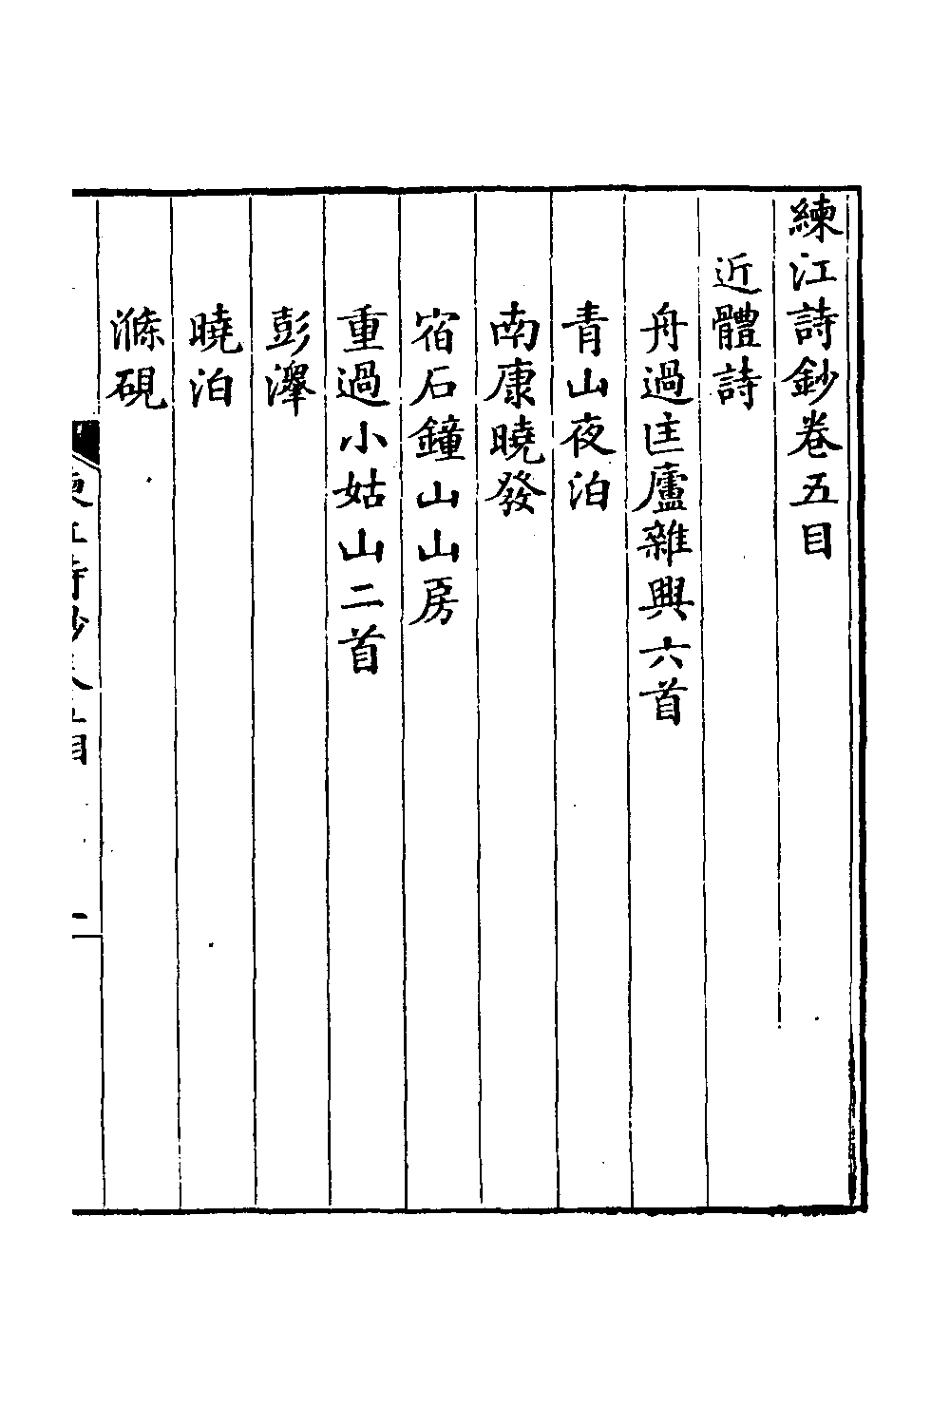 練江詩鈔卷五目
近體詩
舟過匡廬雜興六首
青山夜泊
南康曉發
宿石鐘山山房
重過小姑山二首
彭澤
曉泊
滌硯
練江詩鈔卷五目